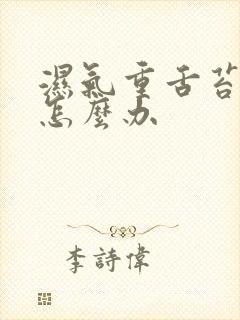 濕氣重舌苔
怎麼办
李詩偉